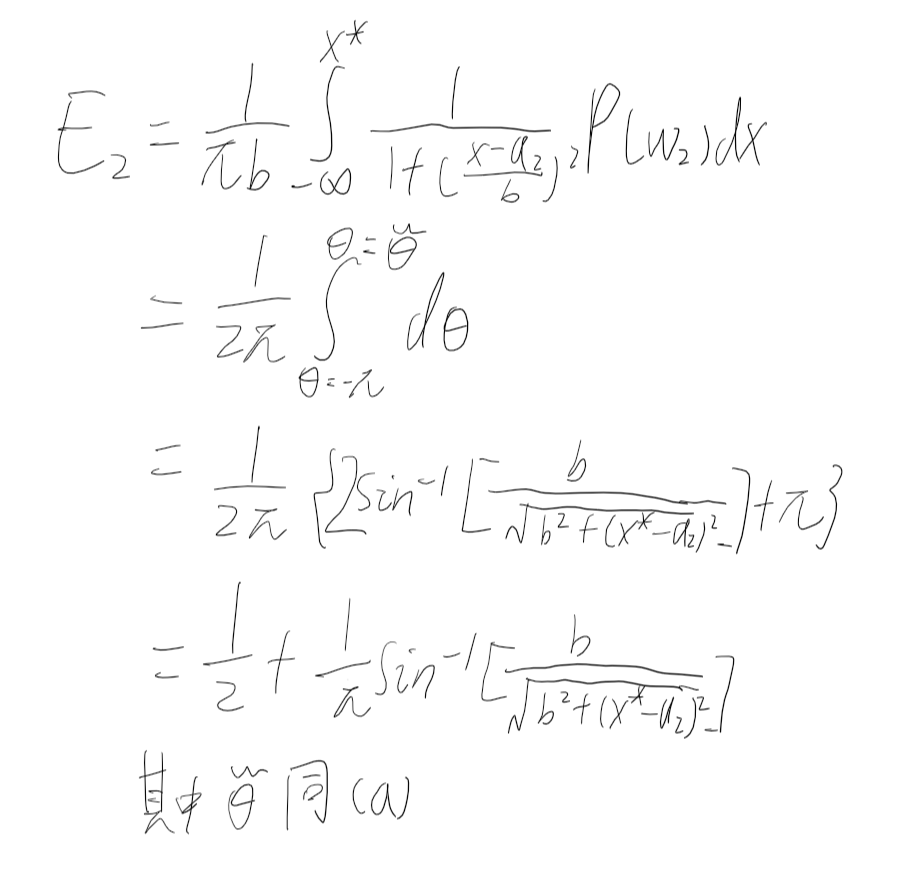 E₂ = \frac{1}{πb} \int_{-∞}^{x*} \frac{1}{1+(\frac{x-a₂}{b})²} P(w₂)dx
= \frac{1}{2π} \int_{θ=-π}^{θ=\tilde{θ}} dθ
= \frac{1}{2π} {2sin⁻¹[\frac{b}{\sqrt{b²+(x*-a₂)²}}]+π}
= \frac{1}{2} + \frac{1}{π} sin⁻¹[\frac{b}{\sqrt{b²+(x*-a₂)²}}]
其中 \tilde{θ} 同(a)